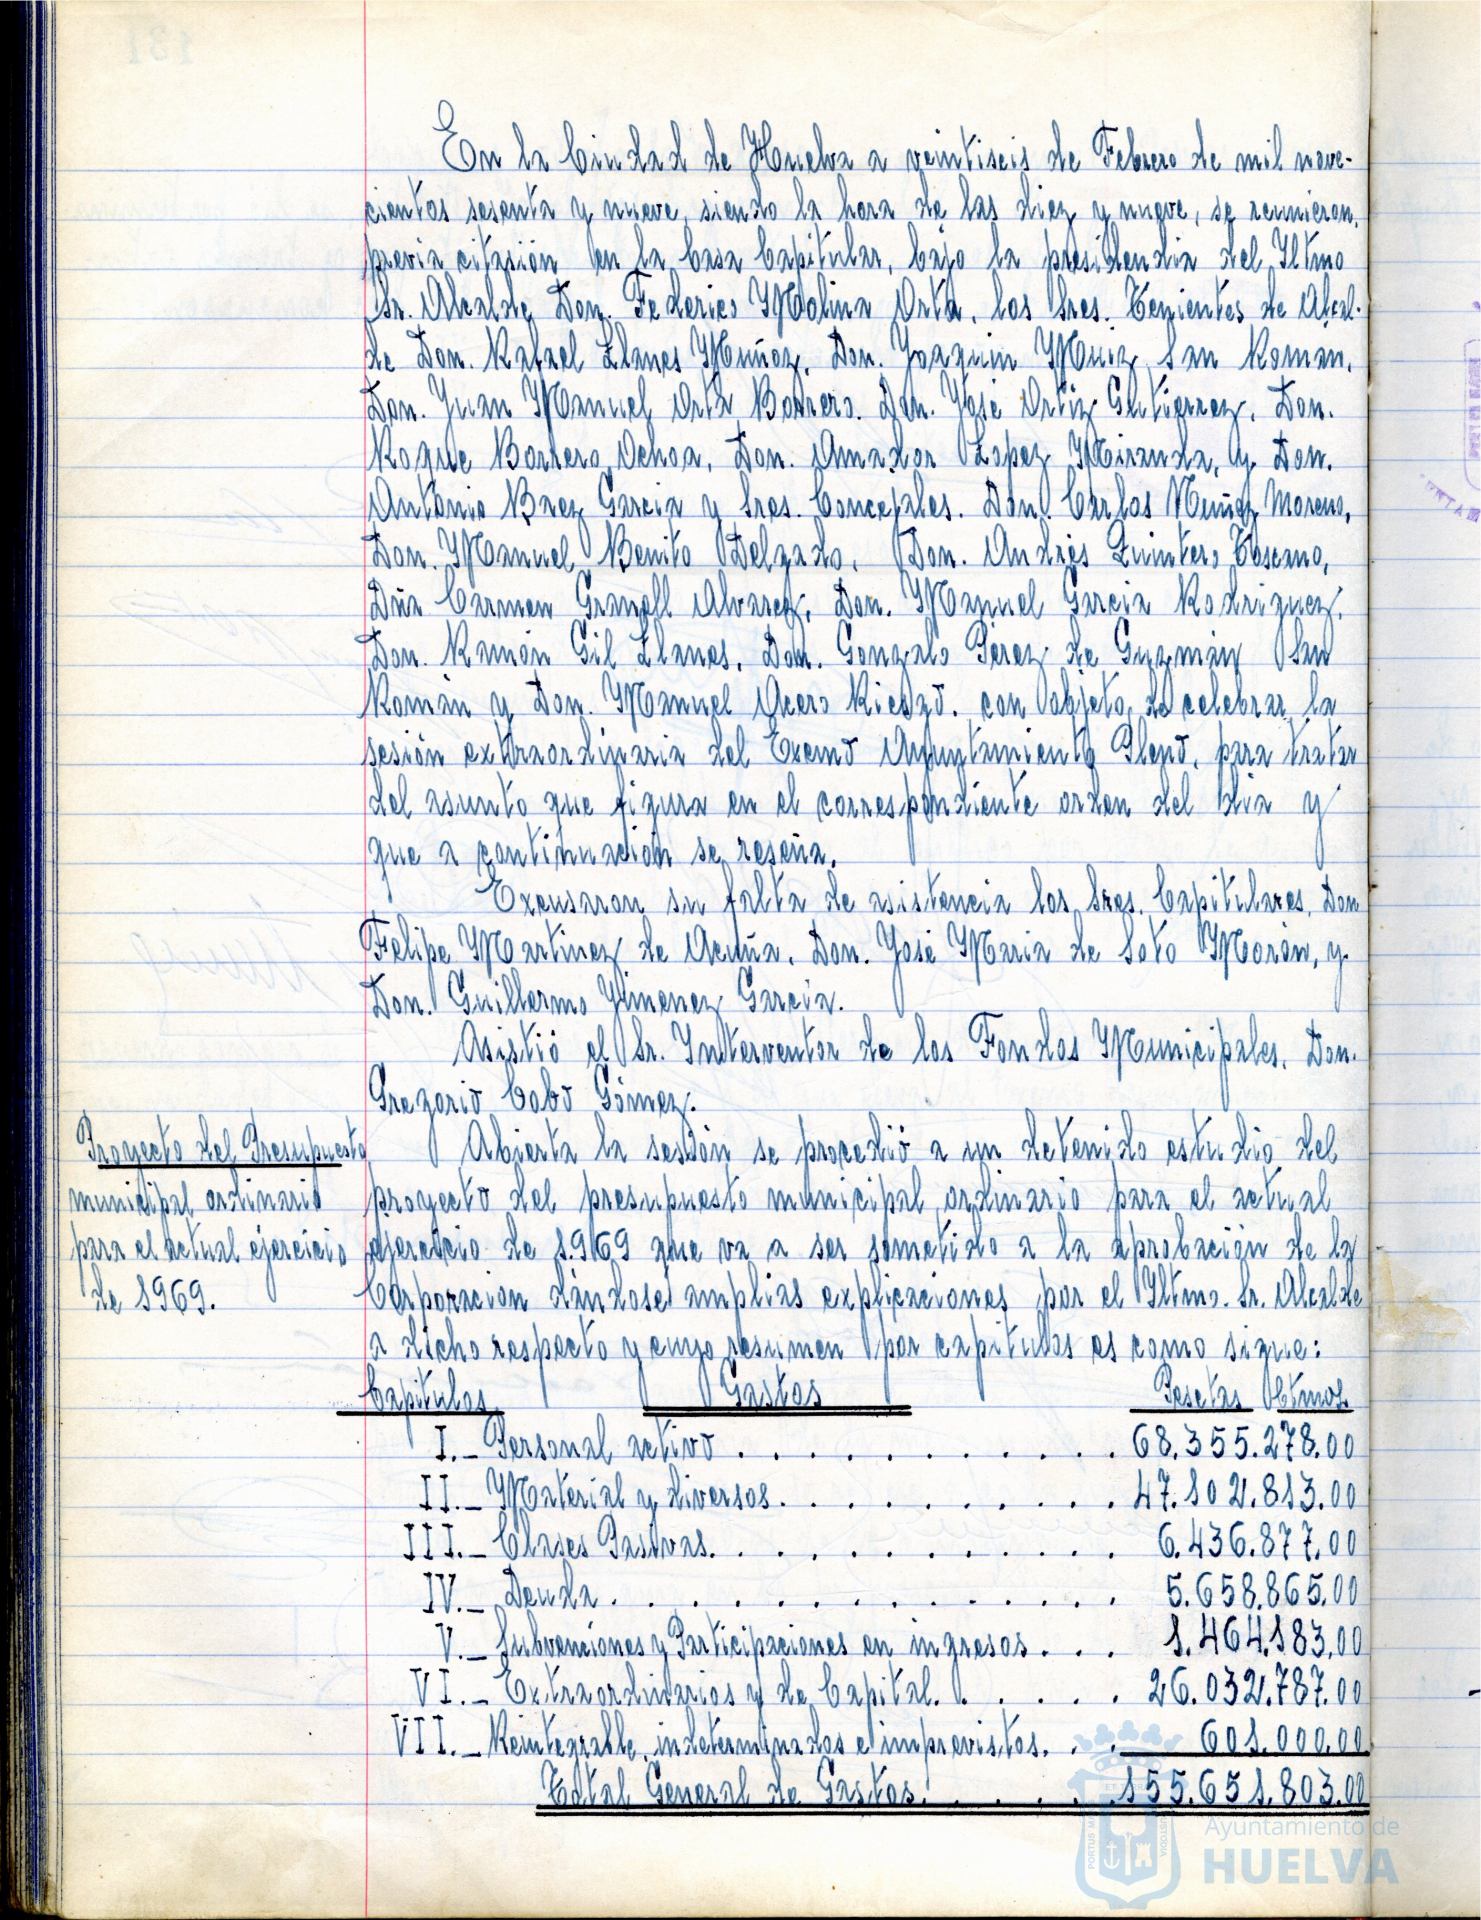 En la Ciudad de Huelva a veintiseis de Febrero de mil nove-
cientos sesenta y nueve, siendo la hora de las diez y nueve, se reunieron,
previa citación en la Casa Capitular, bajo la presidencia del Iltmo
Sr. Alcalde Don. Federico Molina Orta, los Sres. Tenientes de Alcal-
de Don. Rafael Llanes Muñoz, Don. Joaquin Muiz San Roman,
Don. Juan Manuel Orta Borrero. Don. José Ortiz Gutierrez, Don.
Roque Borrero Ochoa, Don. Amador Lopez Miranda, y Don.
Antonio Baez Garcia y Sres. Concejales. Don. Carlos Nuñez Moreno,
Don. Manuel Benito Delgado, Don. Andrés Quintero Toscano,
Dña Carmen Granell Alvarez, Don. Manuel Garcia Rodriguez,
Don. Ramón Gil Llanes, Don. Gonzalo Pérez de Guzmán San
Román y Don. Manuel Acero Riesgo, con objeto de celebrar la
sesión extraordinaria del Excmo Ayuntamiento Pleno, para tratar
del asunto que figura en el correspondiente orden del dia y
que a continuación se reseña.
Excusaron su falta de asistencia los Sres. Capitulares, Don
Felipe Martinez de Acuña, Don. José Maria de Soto Morón, y
Don. Guillermo Jimenez Garcia.
Asistió el Sr. Interventor de los Fondos Municipales, Don.
Gregorio Cobo Gómez.
Proyecto del Presupuesto
municipal ordinario
para el actual ejercicio
de 1969.
Abierta la sesión se procedió a un detenido estudio del
proyecto del presupuesto municipal ordinario para el actual
ejercicio de 1.969 que va a ser sometido a la aprobación de la
Corporación dándose amplias explicaciones por el Iltmo. Sr. Alcalde
a dicho respecto y cuyo resumen por capitulos es como sigue:
Capitulos Gastos Pesetas Ctmos.
I.- Personal activo . . . . . . . . . . . 68.355.278.00
II.- Material y diversos. . . . . . . . . . 47.102.813.00
III.- Clases Pasivas. . . . . . . . . . . . 6.436.877.00
IV.- Deuda . . . . . . . . . . . . . . 5.658.865.00
V.- Subvenciones y Participaciones en ingresos . . . 1.464.183,00
VI.- Extraordinarios y de Capital. . . . . . 26.032.787.00
VII.- Reintegrable, indeterminados e imprevistos. . . 601.000.00
Total General de Gastos. . . . . . 155.651.803.00
Ayuntamiento de
HUELVA